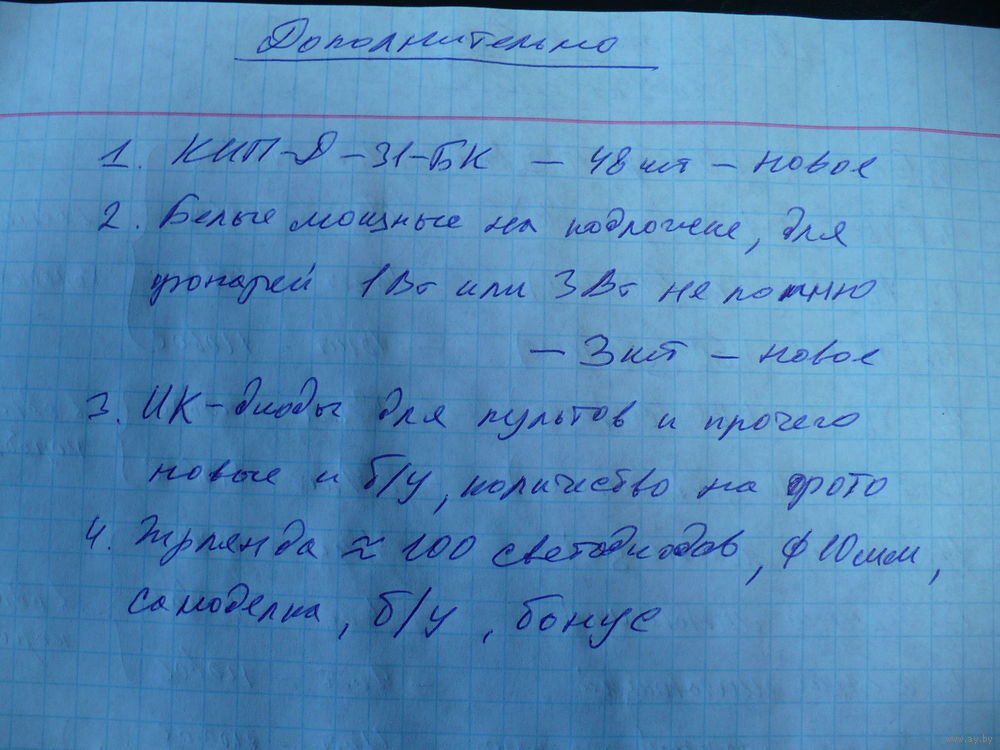 Дополнительно
1. КИП-Д-31-БК — 48 шт — новое
2. Белые мощные на подложке, для
фонарей 1Вт или 3Вт не помню
— 3 шт — новое
3. ИК-диоды для пультов и прочего
новые и б/у, количество на фото
4. Гирлянда ≈ 100 светодиодов, ф 10мм,
самоделка, б/у, бонус
www.ay.by